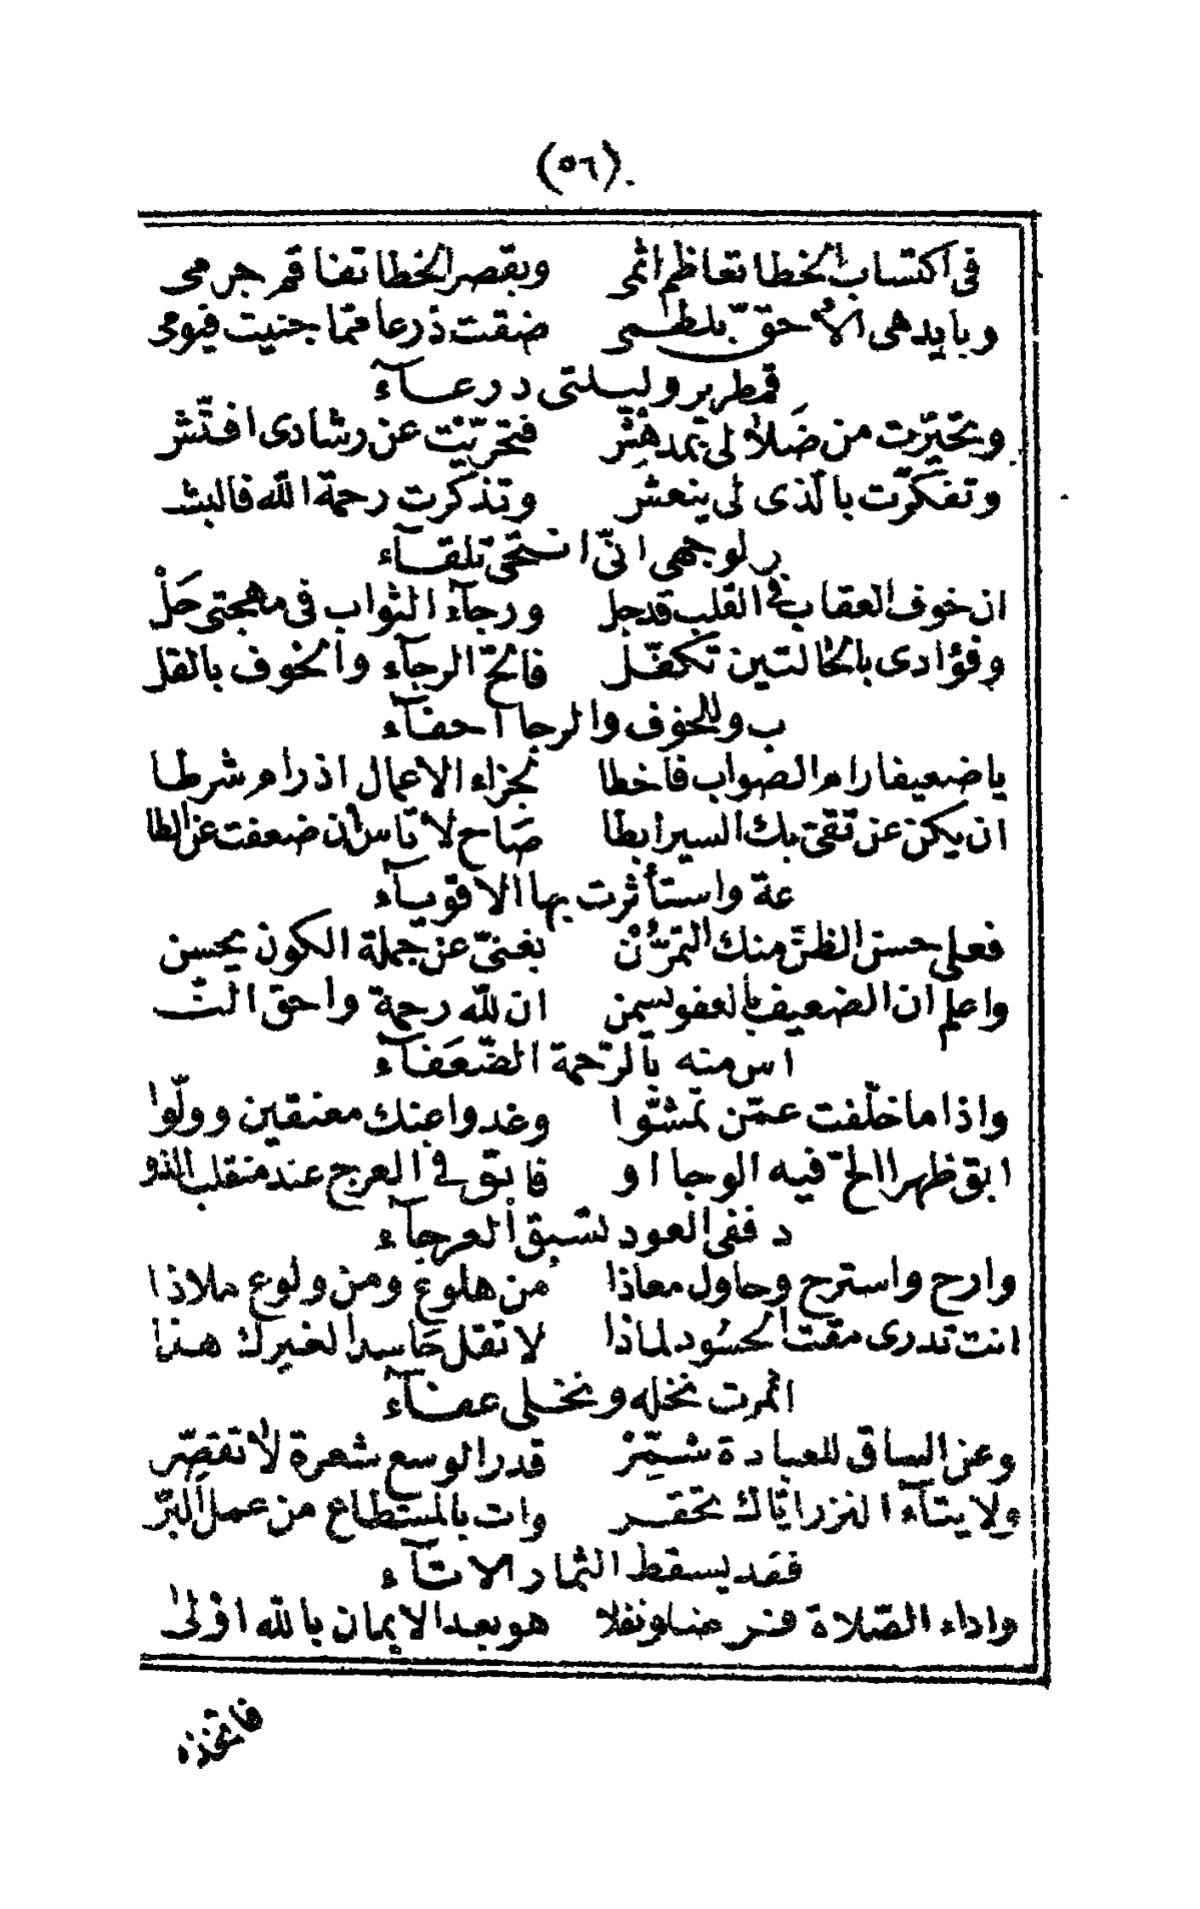 (٥٦)
في اكتساب الخطا تعاظم اثمى وبقصر الخطا تفاقم جرمى
وبايدهى الأحقّ بلطمى ضقت ذرعا ممّا جنيت فيومى
قمطرير وليلتى درعآء
وتحيّرت من ضَلالى تمدهشّ فتحرّيت عن رشادى افتّش
وتفكّرت بالّذى لى ينعش وتذكّرت رحمة الله فالبشـ
ـر لوجهى انّى انتحى تلقآء
ان خوف العقاب في القلب قد جل ورجآء الثواب في مهجتى حَلْ
وفؤادى بالحالتين تكفّل فالحّ الرجآء والخوف بالقلـ
ـب وللخوف والرجا احفآء
ياضعيفا رام الصواب فاخطا لجزاء الاعمال اذ رام شرطا
ان يكن عن تقىّ بك السير ابطا صَاح لا تاس ان ضعفت عن الطا
عة واستأثرت بها الاقويآء
فعلى حسن الظنّ منك التمرُّنْ بغنىّ عن جملة الكون يحسن
واعلم ان الضعيف بالعفو يسمن ان لله رحمة واحق النّـ
ـاس منه بالرّحمة الضّعَفآء
واذا ما خلّفت عمّن تمشّوا وغدوا عنك معنقين وولّوا
ابق ظهرا الحّ فيه الوجا او فابق في العرج عند منقلب الذو
د ففى العود تسبق العرجآء
وارح واسترح وحاول معاذا من هلوع ومن ولوع ملاذا
انت تدرى مقت الحسُود لماذا لا تقل حَاسدا لغيرك هذا
اثمرت نخله ونخلى عفآء
وعن الساق للعبادة شمّرْ قدر الوسع شعرة لا تقصّر
ولا يتآء النزر ايّاك تحقر وات بالمستطاع من عمل البرّ
فقد يسقط الثمار الاتآء
واداء الصّلاة فرضا ونفلا هو بعد الايمان بالله اوْلىٰ
فاتخذه